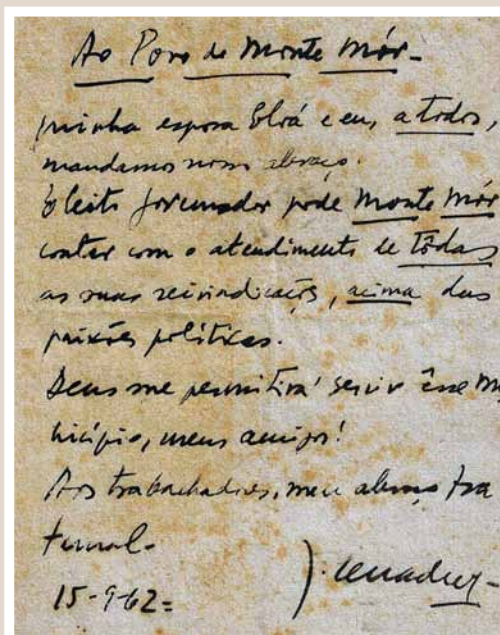 Ao Povo de Monte Mór -
minha esposa Eloá e eu, a todos,
mandamos nosso abraço.
Eleito governador pode Monte Mór
contar com o atendimento de tôdas
as suas reivindicações, acima das
paixões políticas.
Deus me permitirá servir êsse mu
nicípio, meus amigos!
Aos trabalhadores, meu abraço fra
ternal.
15-9-62=
J.